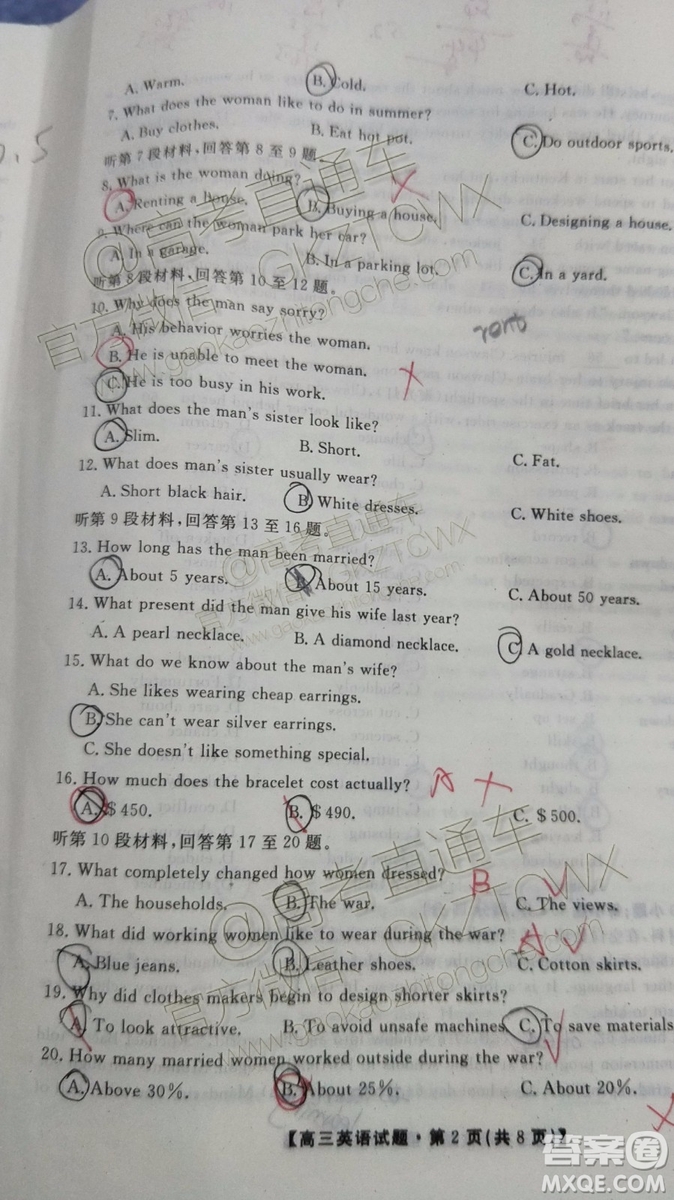 A. Warm. B. Cold. C. Hot.
7. What does the woman like to do in summer?
A. Buy clothes. B. Eat hot pot. C. Do outdoor sports.
听第7段材料，回答第8至9题。
8. What is the woman doing?
A. Renting a house. B. Buying a house. C. Designing a house.
9. Where can the woman park her car?
A. In a garage. B. In a parking lot. C. In a yard.
听第8段材料，回答第10至12题。
10. Why does the man say sorry?
A. His behavior worries the woman.
B. He is unable to meet the woman.
C. He is too busy in his work.
11. What does the man's sister look like?
A. Slim. B. Short. C. Fat.
12. What does man's sister usually wear?
A. Short black hair. B. White dresses. C. White shoes.
听第9段材料，回答第13至16题。
13. How long has the man been married?
A. About 5 years. B. About 15 years. C. About 50 years.
14. What present did the man give his wife last year?
A. A pearl necklace. B. A diamond necklace. C. A gold necklace.
15. What do we know about the man's wife?
A. She likes wearing cheap earrings.
B. She can't wear silver earrings.
C. She doesn't like something special.
16. How much does the bracelet cost actually? A
A. $450. B. $490. C. $500.
听第10段材料，回答第17至20题。
17. What completely changed how women dressed? B
A. The households. B. The war. C. The views.
18. What did working women like to wear during the war? A
A. Blue jeans. B. Leather shoes. C. Cotton skirts.
19. Why did clothes makers begin to design shorter skirts?
A. To look attractive. B. To avoid unsafe machines. C. To save materials
20. How many married women worked outside during the war?
A. Above 30%. B. About 25%. C. About 20%.
【高三英语试题·第2页(共8页)】
@高考直通车
官方微信:GKZTCWX
www.gaokaozhitongche.com
@高考直通车
官方微信:GKZTCWX
www.gaokaozhitongche.com
作业帮
MXQE.COM